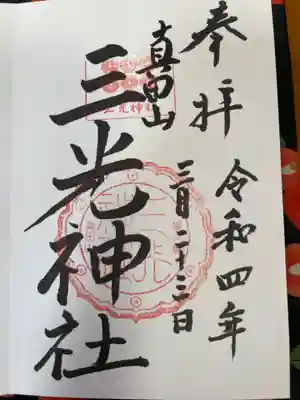 奉拝
令和四年
三月二十三日
真田山
三光神社
三光神社